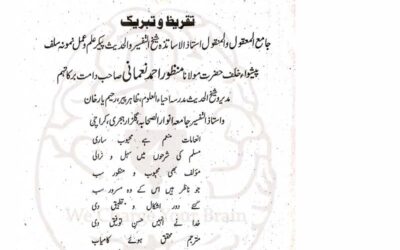 تقریظ و تبریک
جامع المعقول والمنقول استاذ الاساتذہ شیخ التفسیر والحدیث پیکر علم و عمل نمونہ سلف
پیشواء خلف حضرت مولانا منظور احمد نعمانی صاحب دامت برکاتہم
مدیر و شیخ الحدیث مدرسہ احیاء العلوم، ظاہر پیر، رحیم یار خان
و استاذ التفسیر جامعہ انوار الصحابہ گلزار ہجری، کراچی
انعامات منعم ہے محبوب ساری
مسلم کی شرحوں میں سہل و نرالی
مؤلف بھی محبوب و منظور سب
جو ناظر ہیں اس کے وہ مسرور سب
گئے دور اشکال و تطبیق دی
خدا نے انہیں حسن توفیق دی
مترجم محقق ہوئے کامیاب
We Brain